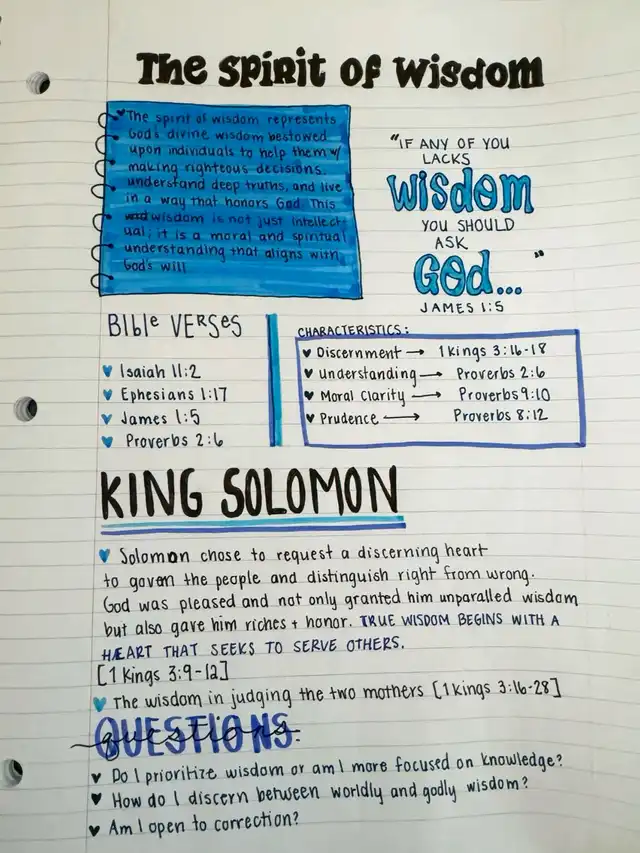 The Spirit of Wisdom
The spirit of wisdom represents
God's divine wisdom bestowed
upon individuals to help them w/
making righteous decisions.
understand deep truths, and live
in a way that honors God. This
wisdom is not just intellect-
ual; it is a moral and spiritual
understanding that aligns with
God's will
"IF ANY OF YOU
LACKS
WISDOM
YOU SHOULD
ASK
GOD..."
JAMES 1:5
BIBLE VERSES
Isaiah 11:2
Ephesians 1:17
James 1:5
Proverbs 2:6
CHARACTERISTICS:
Discernment → 1 Kings 3:16-18
Understanding → Proverbs 2:6
Moral Clarity → Proverbs 9:10
Prudence → Proverbs 8:12
KING SOLOMON
Solomon chose to request a discerning heart
to govern the people and distinguish right from wrong.
God was pleased and not only granted him unparalled wisdom
but also gave him riches + honor. TRUE WISDOM BEGINS WITH A
HEART THAT SEEKS TO SERVE OTHERS.
[1 Kings 3:9-12]
The wisdom in judging the two mothers [1 Kings 3:16-28]
QUESTIONS
questions
Do I prioritize wisdom or am I more focused on knowledge?
How do I discern between worldly and godly wisdom?
Am I open to correction?